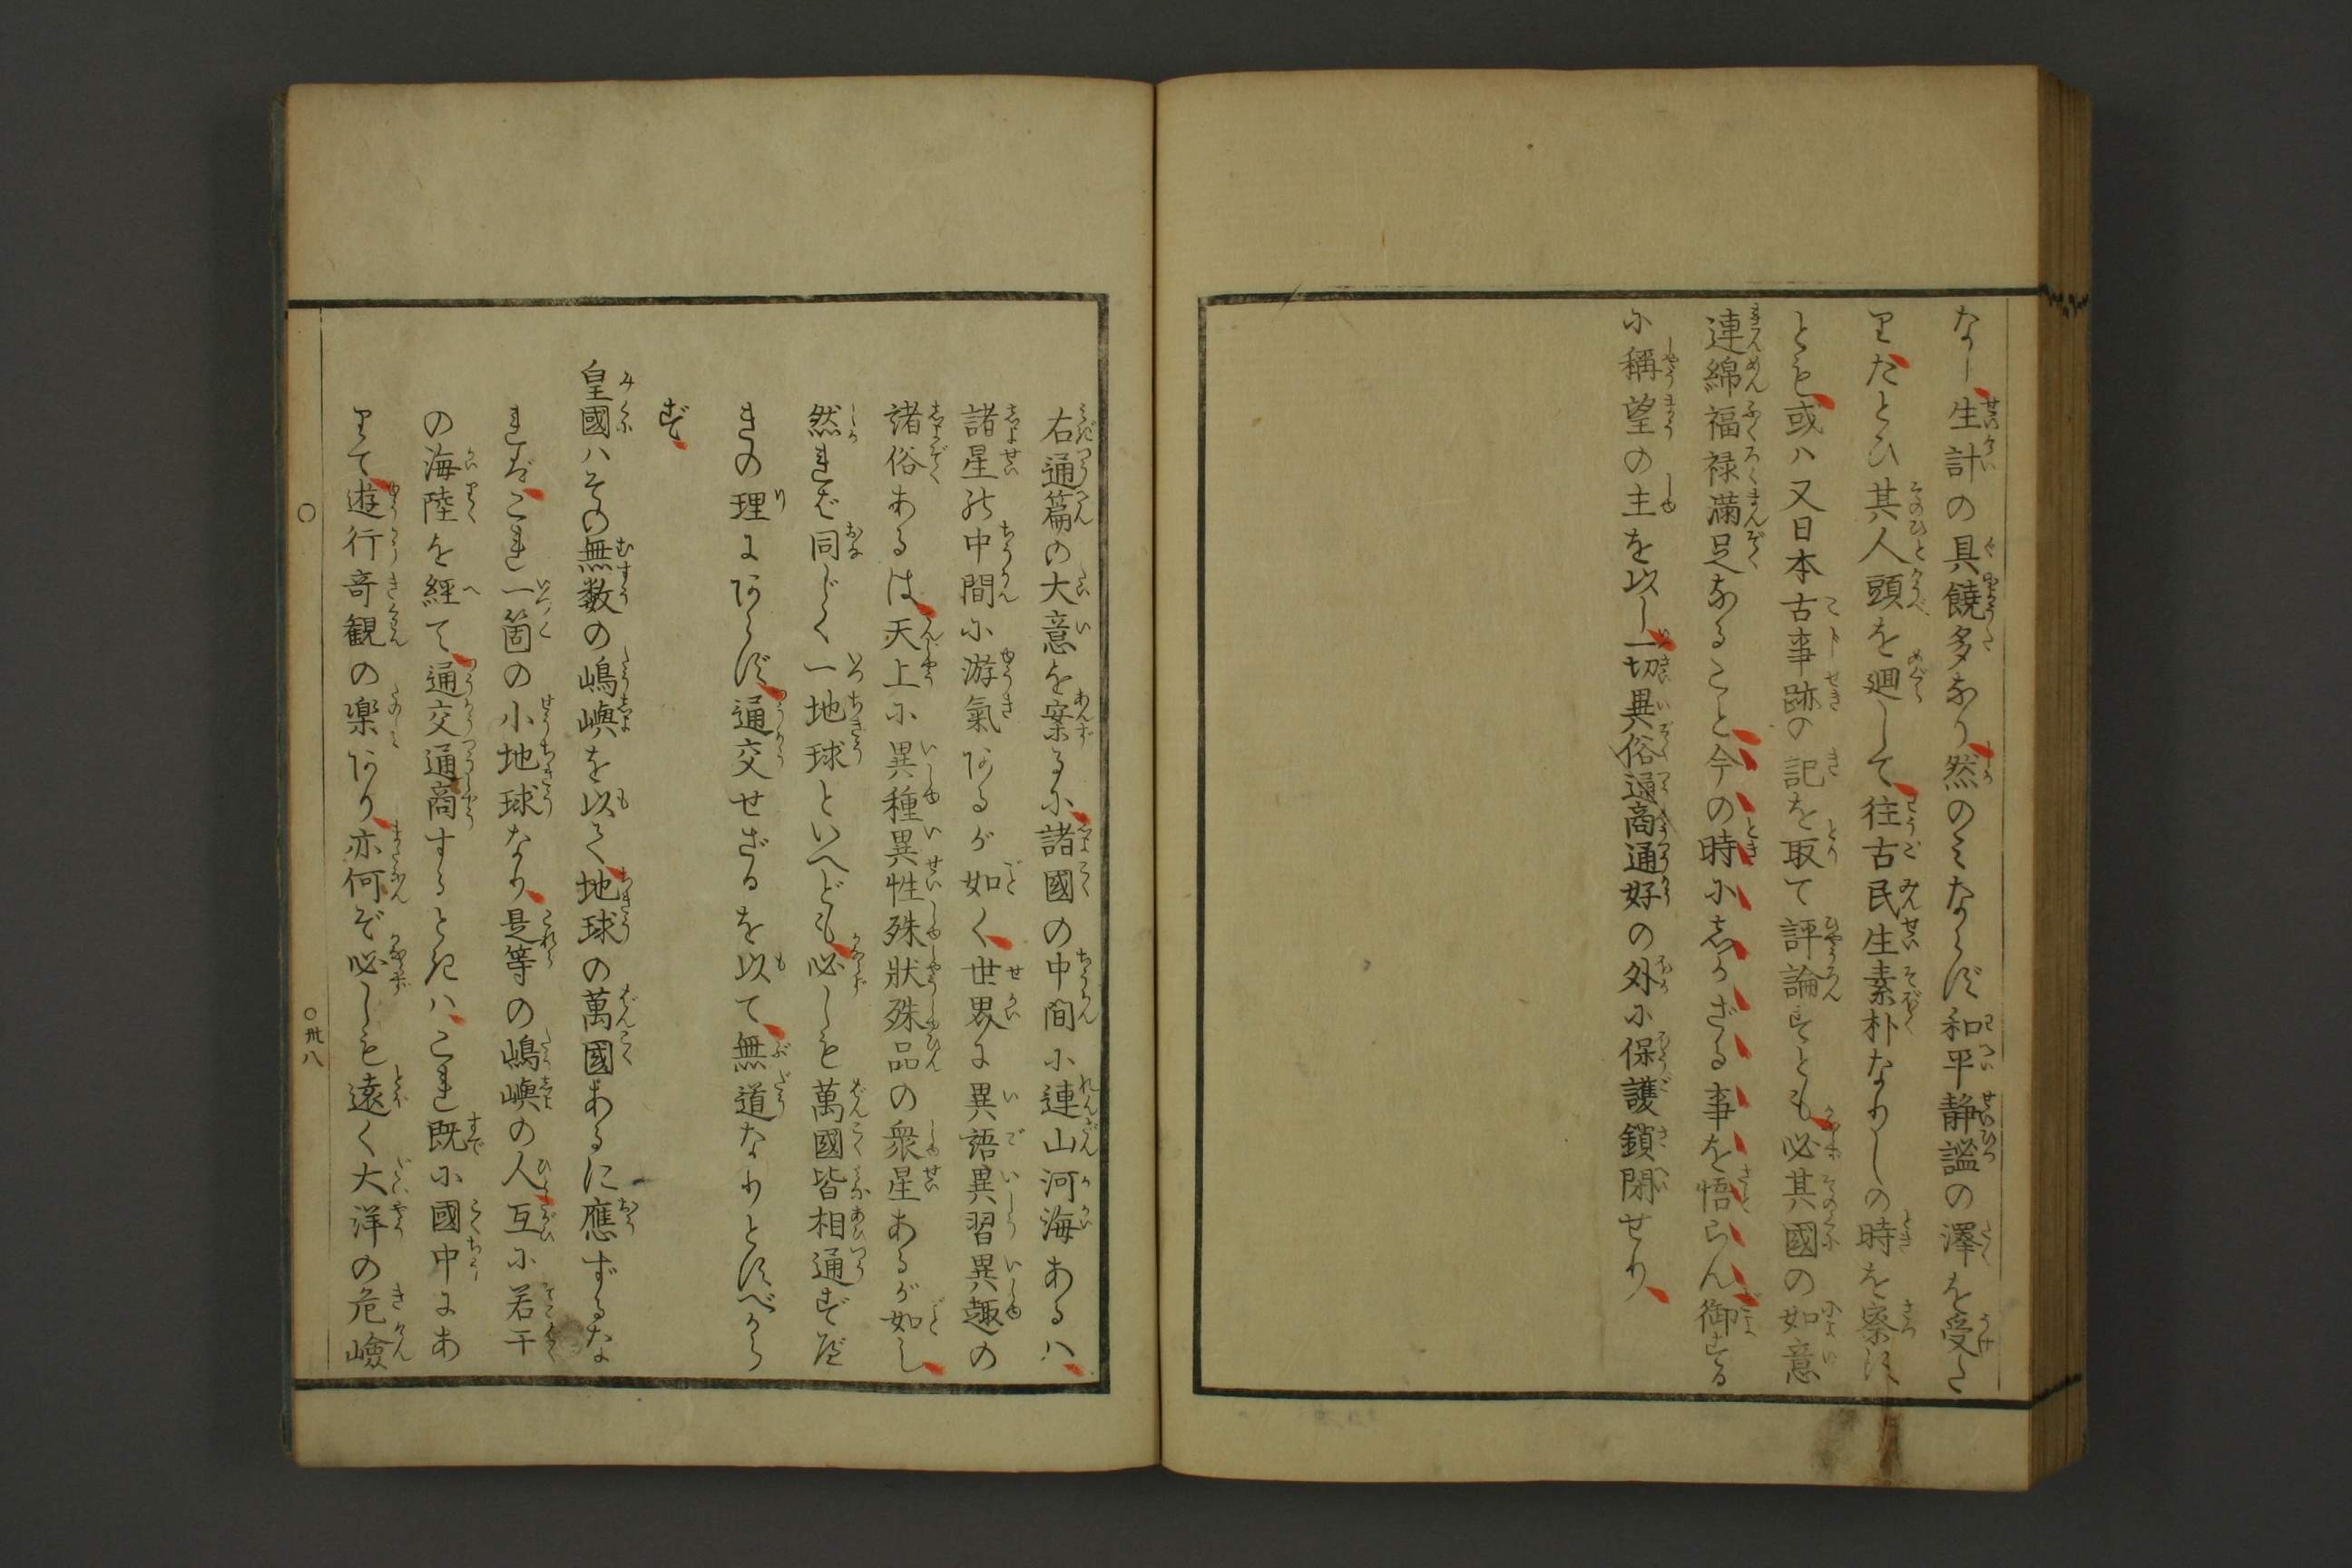 なし生計の具饒多なり然のミならず和平静謐の澤を受た
りたとひ其人頭を廻して往古民生素朴なりしの時を察し
とも或ハ又日本古事跡の記を取て評論すとも必其國の如意
連綿福禄満足なること今の時に志かざる事を悟らん御する
に稱望の主を以し一切異俗通商通好の外に保護鎖閉せり
右通篇の大意を案るに諸國の中間に連山河海あるハ
諸星の中間に游氣あるが如く世界に異語異習異趣の
諸俗あるは天上に異種異性殊狀殊品の衆星あるが如し
然れば同じく一地球といへども必しも萬國皆相通ず
きの理にあらず通交せざるを以て無道なりとすべから
ず
皇國ハその無数の嶋嶼を以て地球の萬國あるに應ずるな
ればこれ一箇の小地球なり是等の嶋嶼の人互に若干
の海陸を經て通交通商するときハこれ既に國中にあ
りて遊行奇観の楽あり亦何ぞ必しも遠く大洋の危嶮
〇
〇卅八